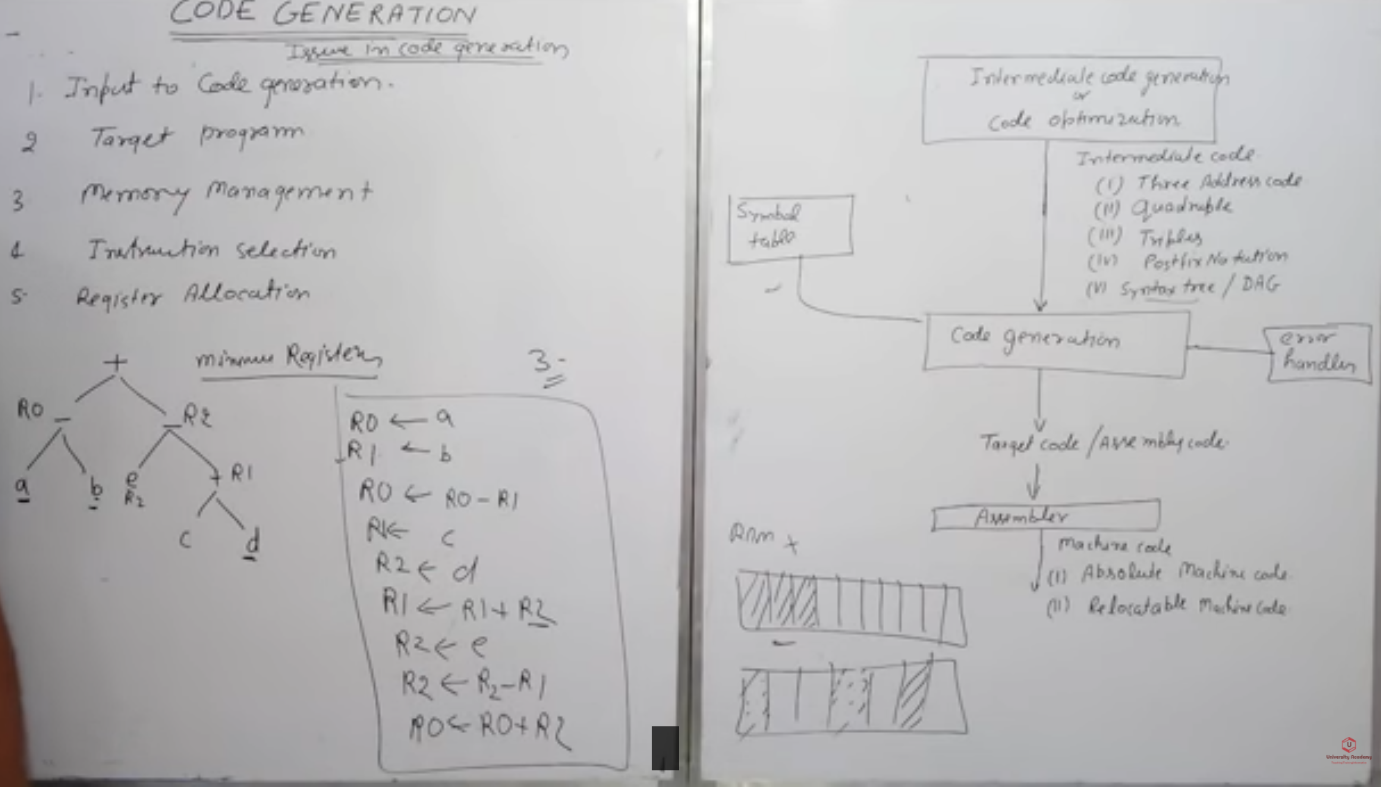 CODE GENERATION
Issue in code generation
1. Input to Code generation.
2 Target program
3. Memory Management
4 Instruction selection
5. Register Allocation
minimum Registers
3
+
R0 - - R2
a b e + R1
R2
c d
R0 ← a
R1 ← b
R0 ← R0 - R1
R1 ← c
R2 ← d
R1 ← R1 + R2
R2 ← e
R2 ← R2 - R1
R0 ← R0 + R2
Intermediate code generation
or
Code optimization
Intermediate code
(I) Three Address code
(II) Quadruple
(III) Triples
(IV) Postfix Notation
(V) Syntax tree / DAG
Symbol
table
Code generation
error
handler
Target code / Assembly code
Assembler
Machine code
(I) Absolute Machine code
(II) Relocatable Machine Code
RAM
University Academy